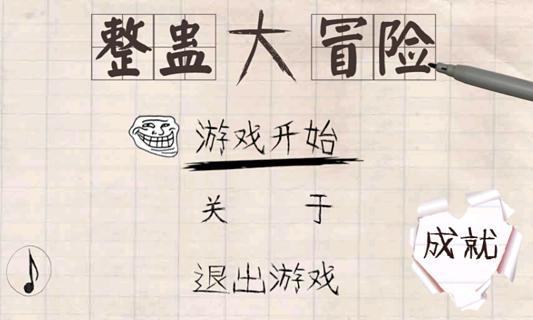 整蛊大冒险
游戏开始
关 于
成就
退出游戏